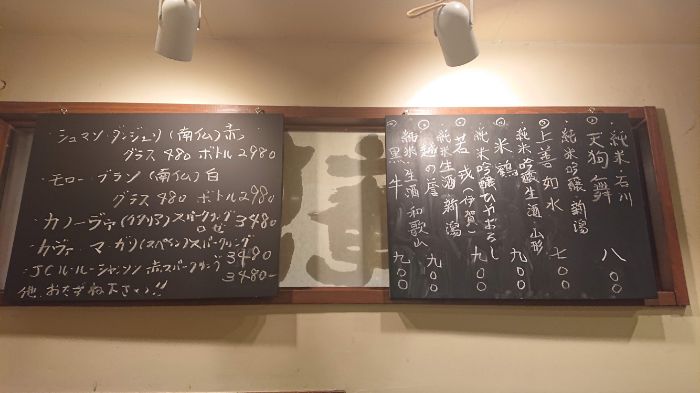 ・シュマン・ダンジュリ(南仏)赤
グラス480 ボトル2980
・モロー・ブラン(南仏)白
グラス480 ボトル2980
・カノーヴァ(イタリア)スパークリング
ロゼ 3480
・カヴァ マガリ(スペイン)スパークリング
3480
・JCル・ルー・シャンソン 赤スパークリング
3480-
他、おたずね下さい!!
純米・石川
天狗舞 八〇〇
純米吟醸 新潟
上善如水 七〇〇
純米吟醸生酒 山形
米鶴 九〇〇
純米吟醸ひやおろし
若戎(伊賀) 九〇〇
純米生酒 新潟
九〇〇
純米 生酒 和歌山
黒牛 九〇〇